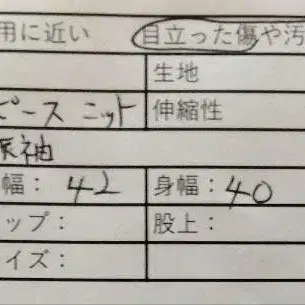 用に近い 目立った傷や汚
生地
ピース ニット 伸縮性
長袖
幅： 42 身幅： 40
ップ： 股上：
イズ：